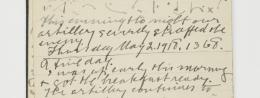 This evening to night our
artillery severely straffed the
enemy.
Thursday May 2. 1918, 1368.
A fine day.
I was up early this morning
& got the breakfast ready.
The artillery continues to